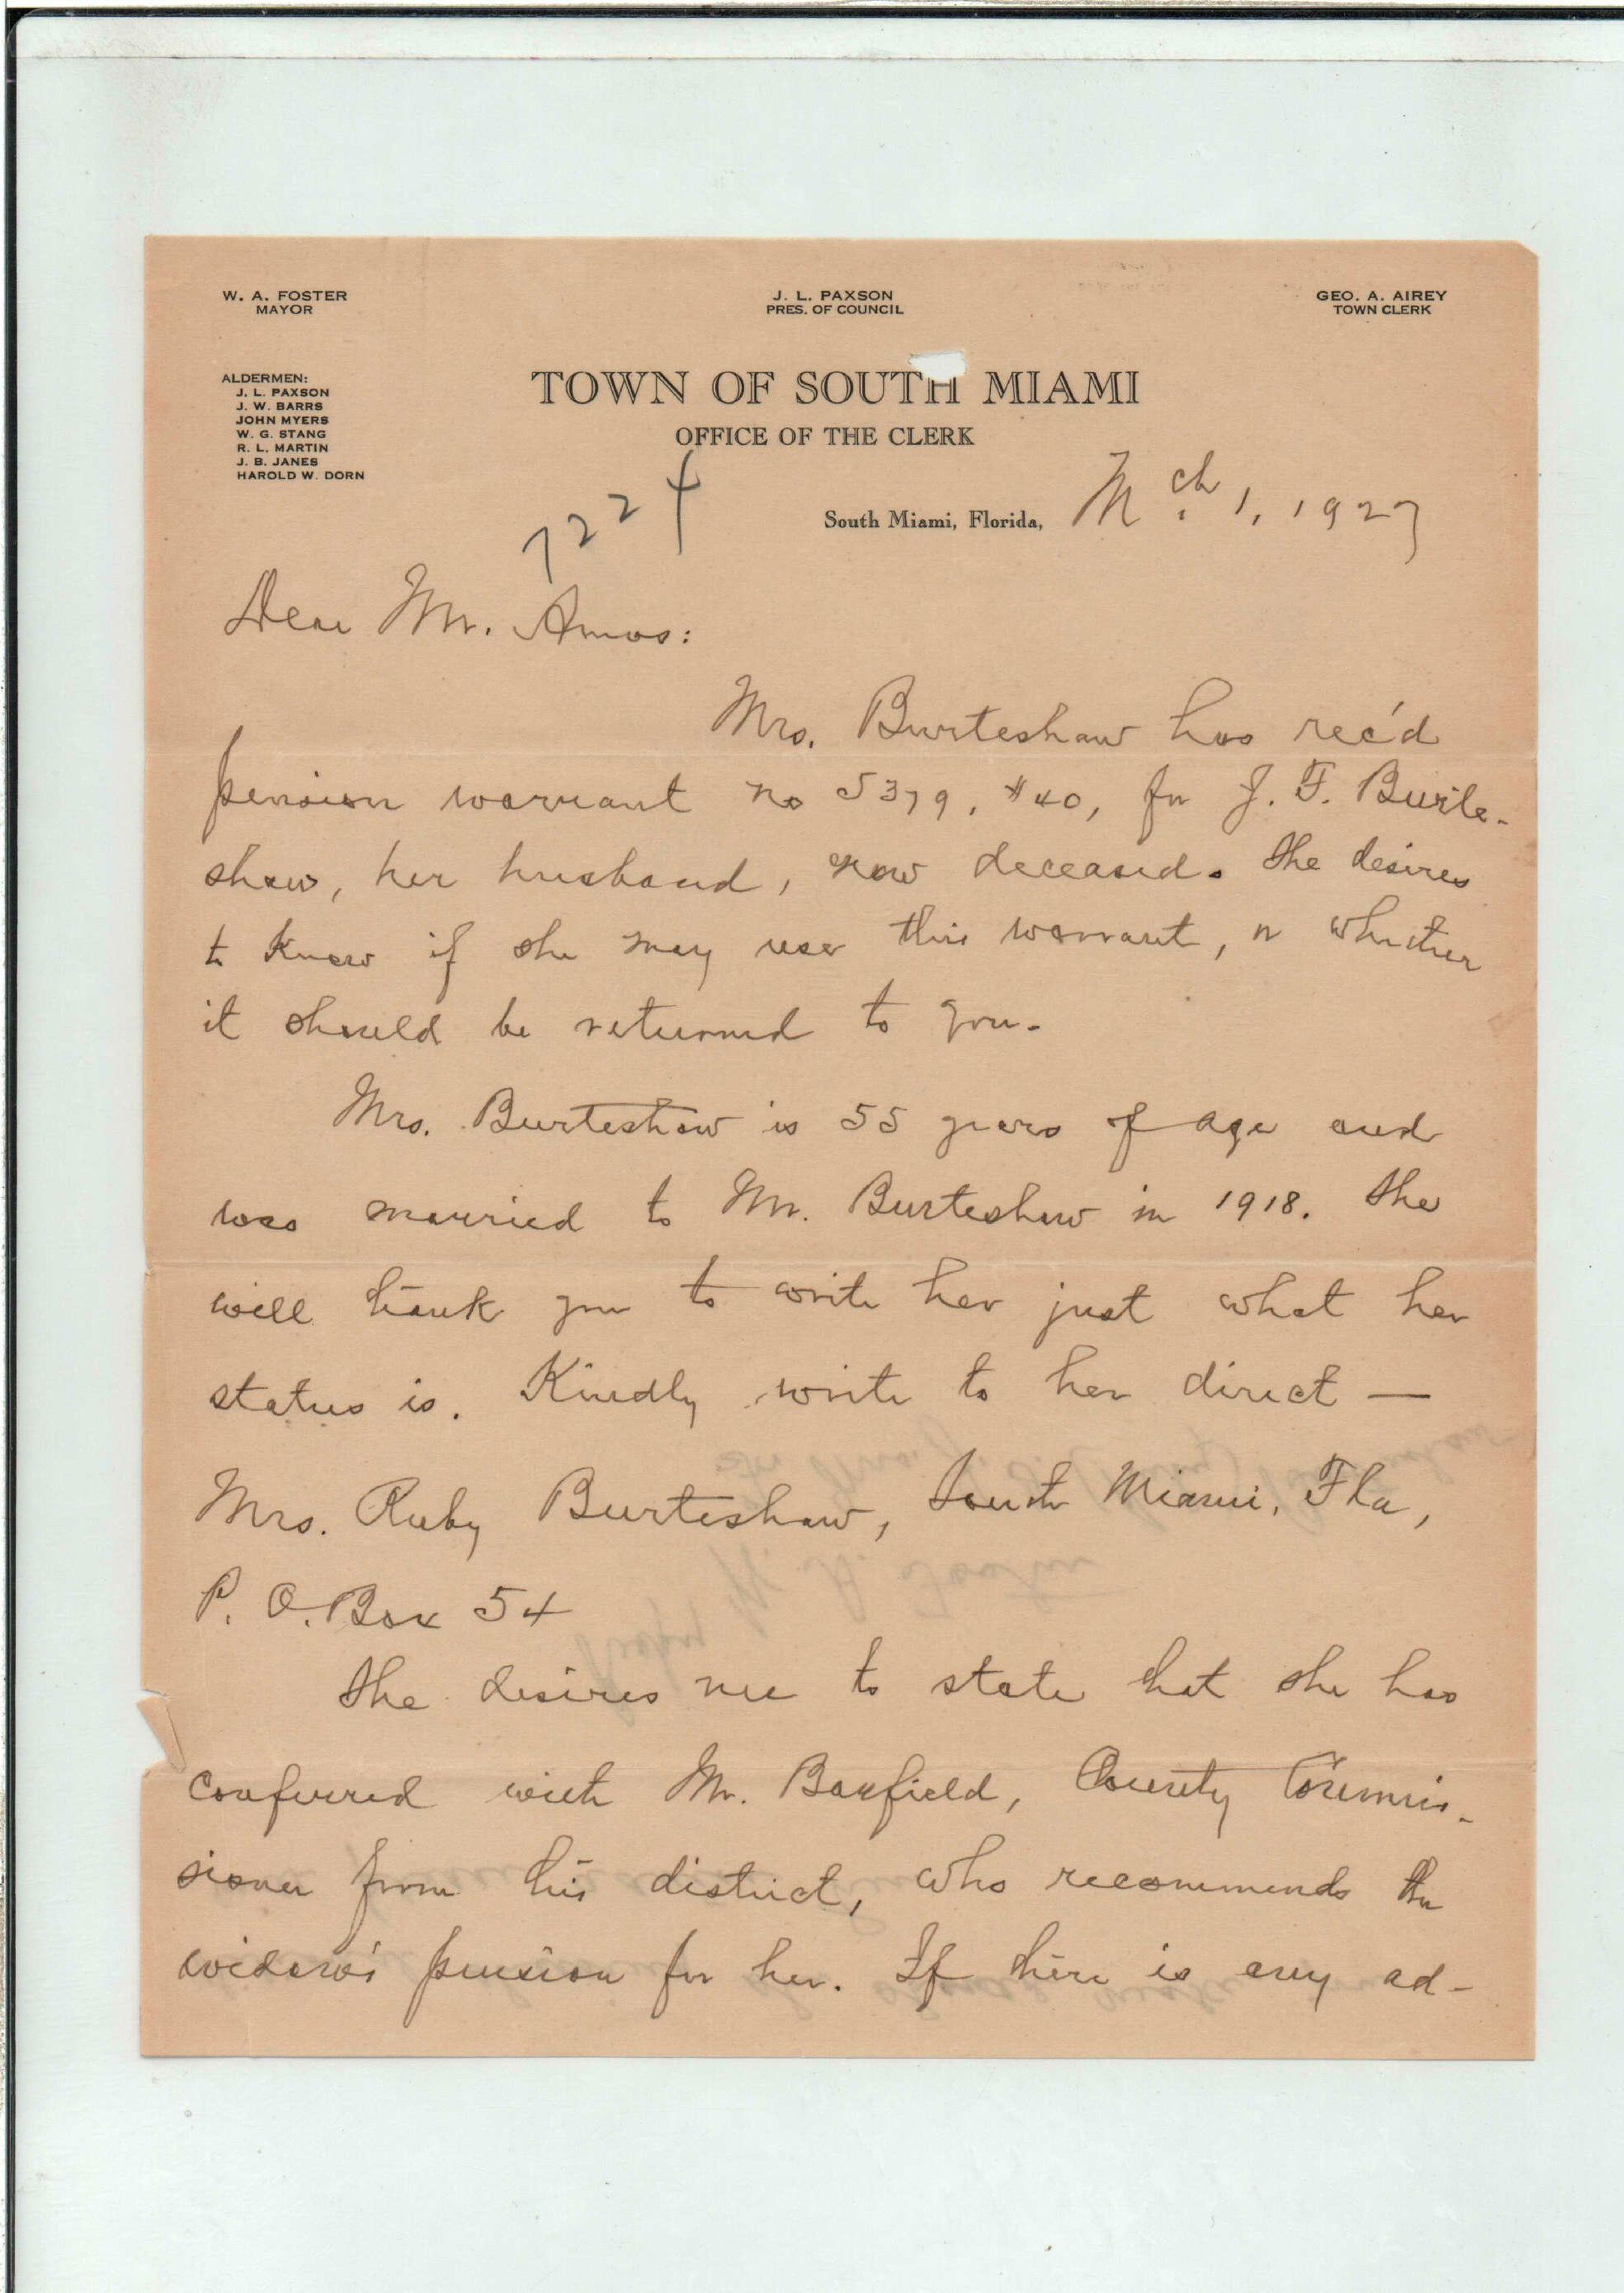 W. A. FOSTER
MAYOR
J. L. PAXSON
PRES. OF COUNCIL
GEO. A. AIREY
TOWN CLERK
ALDERMEN:
J. L. PAXSON
J. W. BARRS
JOHN MYERS
W. G. STANG
R. L. MARTIN
J. B. JANES
HAROLD W. DORN
TOWN OF SOUTH MIAMI
OFFICE OF THE CLERK
7224
South Miami, Florida, Mch. 1, 1927
Dear Mr. Amos:
Mrs. Burteshaw has rec'd
pension warrant no 5379, $40, for J. F. Burte-
shaw, her husband, now deceased. She desires
to know if she may use this warrant, or whether
it should be returned to you.
Mrs. Burteshaw is 55 years of age and
was married to Mr. Burteshaw in 1918. She
will thank you to write her just what her
status is. Kindly write to her direct —
Mrs. Ruby Burteshaw, South Miami, Fla,
P. O. Box 54
She desires me to state that she has
conferred with Mr. Barfield, County Commis-
sioner from this district, who recommends the
widow's pension for her. If there is any ad-